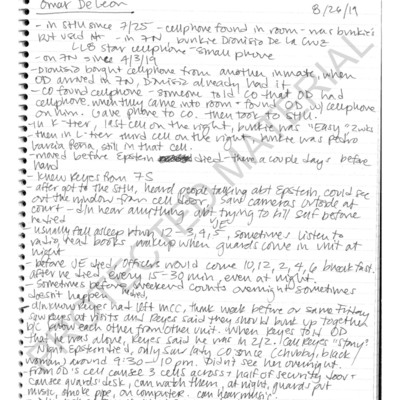 Omar DeLeon 8/26/19
- in SHU since 7/25 - cellphone found in room - was bunkie's
but used it - in 7N, bunkie Dionisio De La Cruz
LLB star cellphone - small phone
- on 7N since 4/3/19
- Dionisio bought cellphone from another inmate, when
OD arrived in 7N, Dionisio already had it
- CO found cellphone - someone told CO that OD had
cellphone, when they came into room + found OD w/ cellphone
on him. Gave phone to CO. then took to SHU.
- in K-tier, last cell on the right, bunkie was "Easy" 2 wks
- then in L-tier third cell on the right, bunkie was pedro
Garcia Pena, still in that cell.
- moved before Epstein died - there a couple days before
hand
- knew Reyes from 7S
- after got to the SHU, heard people talking abt Epstein, could see
out the window from cell door, saw cameras outside at
court - didn hear anything abt trying to kill self before
he died
- usually fall asleep btwn 12-3, 4, 5, sometimes listen to
radio, read books - awake when guards come in unit at
night
- before JE died, officers would come 10, 12, 2, 4, 6 breakfast.
after he died, every 15-30 min, even at night.
- sometimes before weekend counts overnight sometimes
doesn't happen
- didn know Reyes had left MCC, think week before or same Friday
saw Reyes at visits and Reyes said they should bunk up together
b/c know each other from other unit. When Reyes told OD
that he was alone, Reyes said he was in 2/2. Call Reyes "Stony"
- When Epstein died, only saw lady CO since (chubby, black
woman) around 9:30 - 10 pm. Didn't see her overnight.
- from OD's cell can see 3 cells across + half of security door +
can see guards' desk, can watch them, at night, guards put
music, smoke pipe, on computer. can hear music.
WATERMARKED MATERIAL